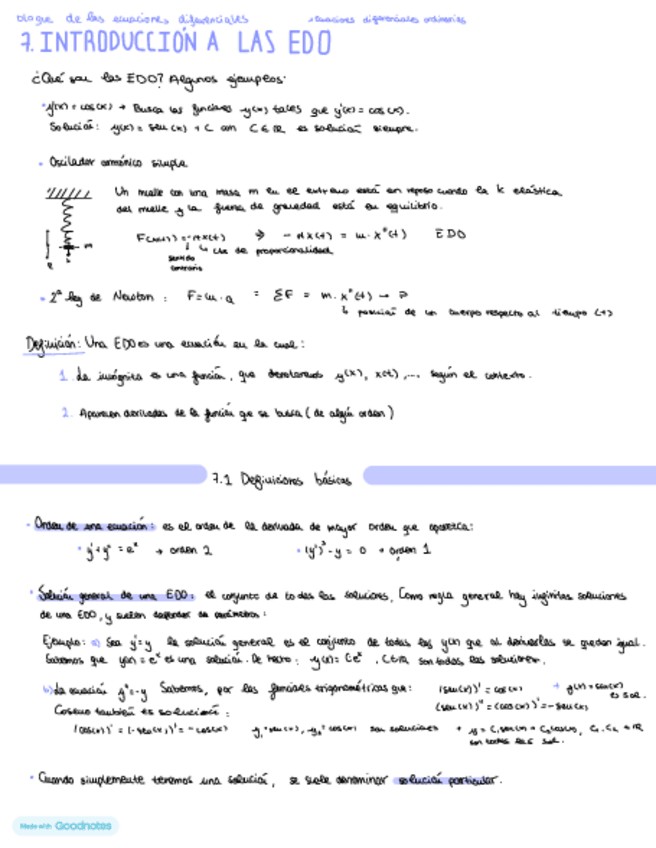 bloque de las ecuaciones diferenciales ecuaciones diferenciales ordinarias
7. INTRODUCCIÓN A LAS EDO
¿Qué son las EDO? Algunos ejemplos:
· y'(x) = cos(x) → Busca las funciones y(x) tales que y'(x) = cos(x).
Solución: y(x) = sen(x) + C con C∈ℝ es solución siempre.
· Oscilador armónico simple
Un muelle con una masa m en el extremo está en reposo cuando la k elástica
del muelle y la fuerza de gravedad está en equilibrio.
F(x(t)) = -kx(t) ⇒ -kx(t) = m·x''(t) EDO
↳ cte de proporcionalidad
sentido
contrario
m
· 2ª ley de Newton: F=m·a = ΣF = m·x''(t) →
↳ posición de un cuerpo respecto al tiempo (t)
Definición: Una EDO es una ecuación en la cual:
1. La incógnita es una función, que denotaremos y(x), x(t),... según el contexto.
2. Aparecen derivadas de la función que se busca (de algún orden)
7.1 Definiciones básicas
· Orden de una ecuación: es el orden de la derivada de mayor orden que aparezca:
· y'+y''=eˣ → orden 2 · (y')³-y=0 → orden 1
· Solución general de una EDO: el conjunto de todas las soluciones. Como regla general hay infinitas soluciones
de una EDO, y suelen depender de parámetros:
Ejemplo: a) Sea y'=y la solución general es el conjunto de todas las y(x) que al derivarlas se quedan igual.
Sabemos que y(x)=eˣ es una solución. De hecho: y(x)=Ceˣ, C∈ℝ son todas las soluciones.
b) La ecuación y''=-y Sabemos, por las funciones trigonométricas que: (sen(x))'=cos(x) → y(x)=sen(x)
es sol.
(sen(x))''=(cos(x))'=-sen(x)
Coseno también es solución:
(cos(x))''=(-sen(x))'=-cos(x) y₁=sen(x), y₂=cos(x) son soluciones → y=C₁sen(x)+C₂cos(x), C₁,C₂∈ℝ
son todas las sol.
· Cuando simplemente tenemos una solución, se suele denominar solución particular.
Made with Goodnotes